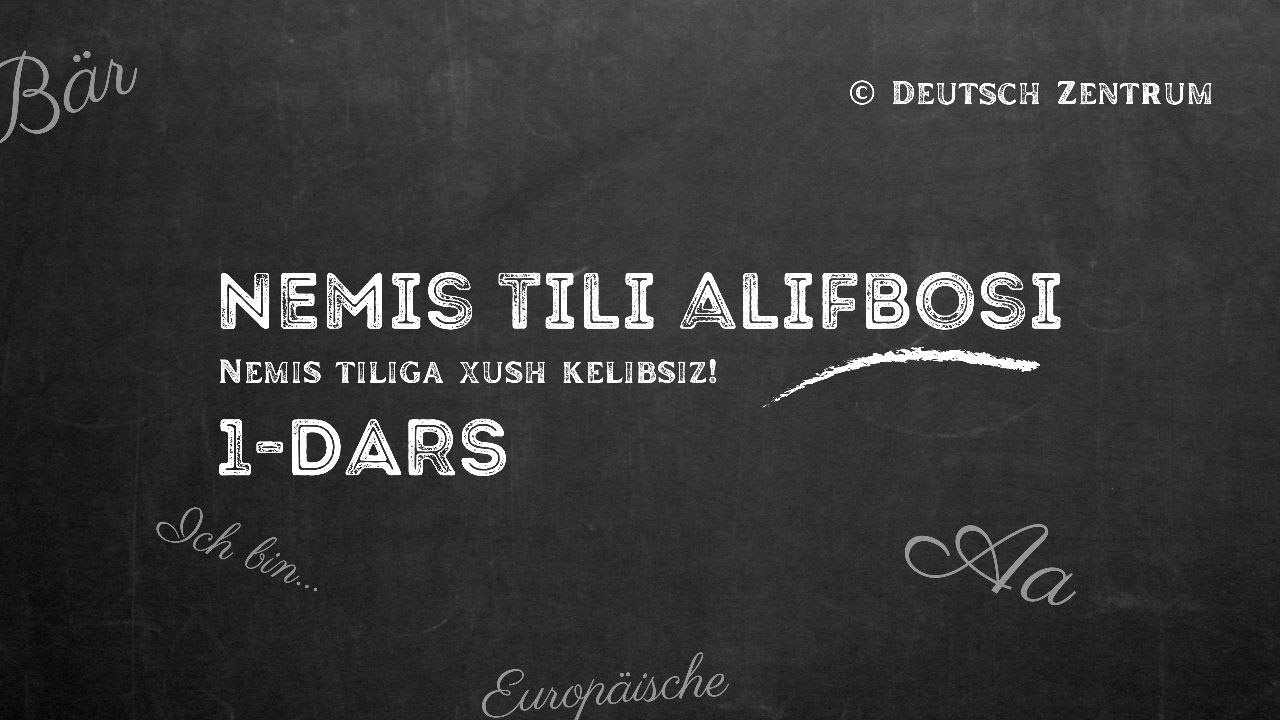 Bär
© Deutsch Zentrum
NEMIS TILI ALIFBOSI
Nemis tiliga xush kelibsiz!
1-DARS
Ich bin...
Aa
Europäische